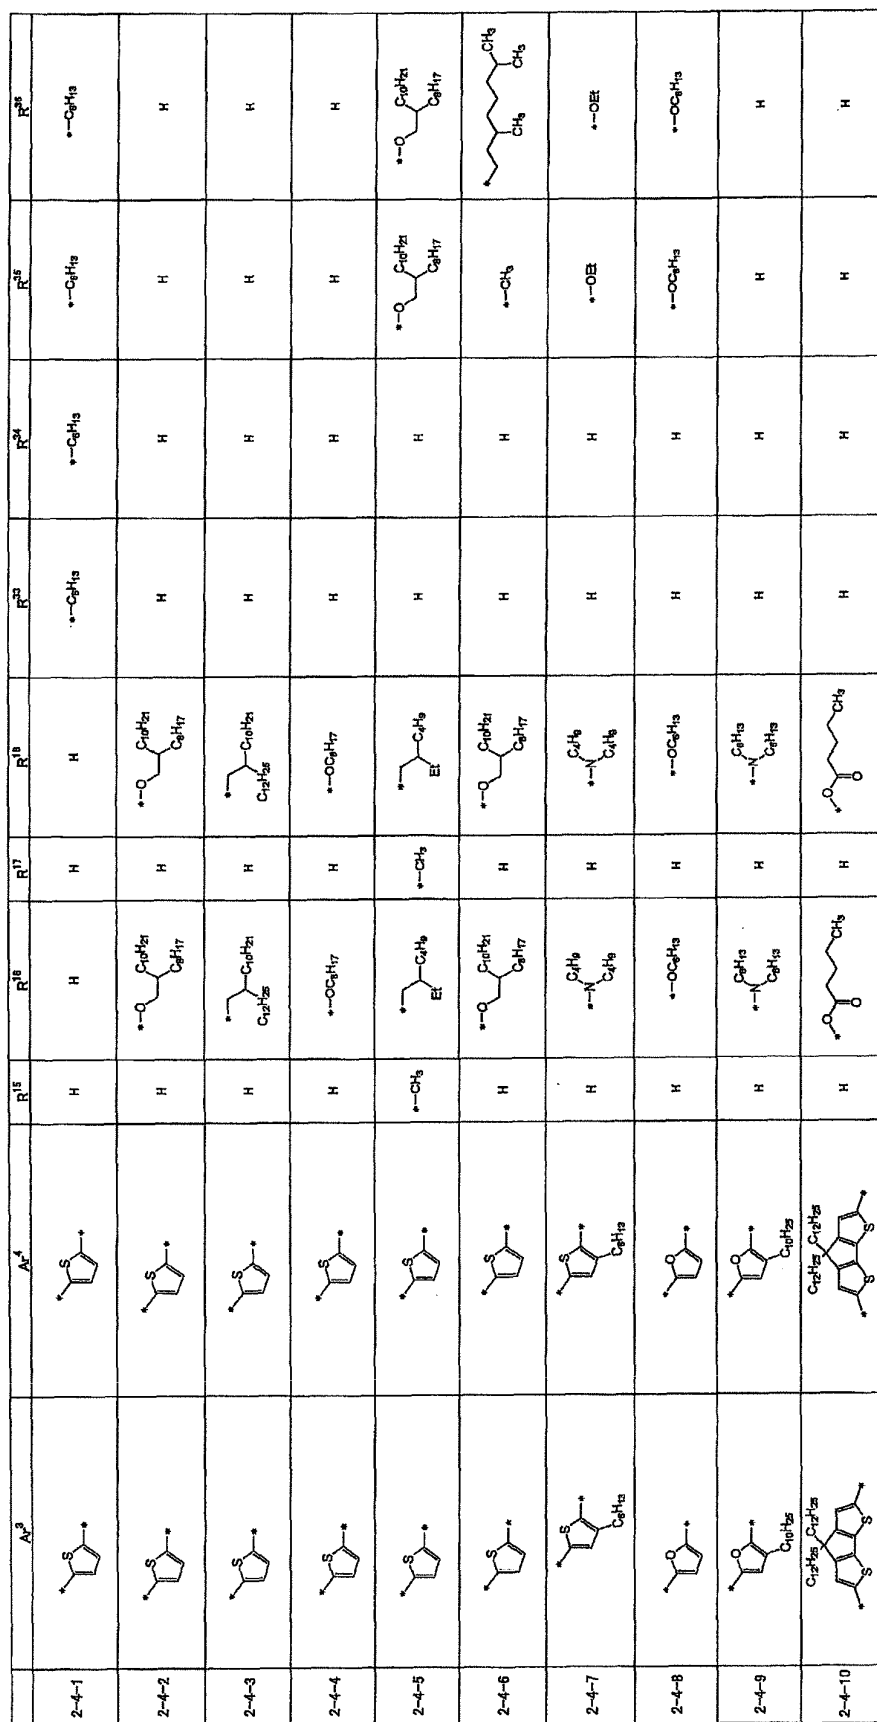 Ar³ Ar⁴ R¹⁵ R¹⁶ R¹⁷ R¹⁸ R³³ R³⁴ R³⁵ R³⁶
2-4-1 *-S-* *-S-* H H H H *-C₆H₁₃ *-C₆H₁₃ *-C₆H₁₃ *-C₆H₁₃
2-4-2 *-S-* *-S-* H *-O C₁₀H₂₁ C₈H₁₇ H *-O C₁₀H₂₁ C₈H₁₇ H H H H
2-4-3 *-S-* *-S-* H * C₁₀H₂₁ C₁₂H₂₅ H * C₁₀H₂₁ C₁₂H₂₅ H H H H
2-4-4 *-S-* *-S-* H *-OC₈H₁₇ H *-OC₈H₁₇ H H H H
2-4-5 *-S-* *-S-* *-CH₃ * C₄H₉ Et *-CH₃ * C₄H₉ Et H H *-O C₁₀H₂₁ C₈H₁₇ *-O C₁₀H₂₁ C₈H₁₇
2-4-6 *-S-* *-S-* H *-O C₁₀H₂₁ C₈H₁₇ H *-O C₁₀H₂₁ C₈H₁₇ H H *-CH₃ * CH₃ CH₃ CH₃
2-4-7 *-S-* C₆H₁₃ *-S-* C₆H₁₃ H C₄H₉ *-N C₄H₉ H C₄H₉ *-N C₄H₉ H H *-OEt *-OEt
2-4-8 *-O-* *-O-* H *-OC₆H₁₃ H *-OC₆H₁₃ H H *-OC₆H₁₃ *-OC₆H₁₃
2-4-9 *-O-* C₁₀H₂₅ *-O-* C₁₀H₂₅ H C₆H₁₃ *-N C₆H₁₃ H C₆H₁₃ *-N C₆H₁₃ H H H H
2-4-10 C₁₂H₂₅ C₁₂H₂₅ *-S S-* C₁₂H₂₅ C₁₂H₂₅ *-S S-* H *-O O CH₃ H *-O O CH₃ H H H H